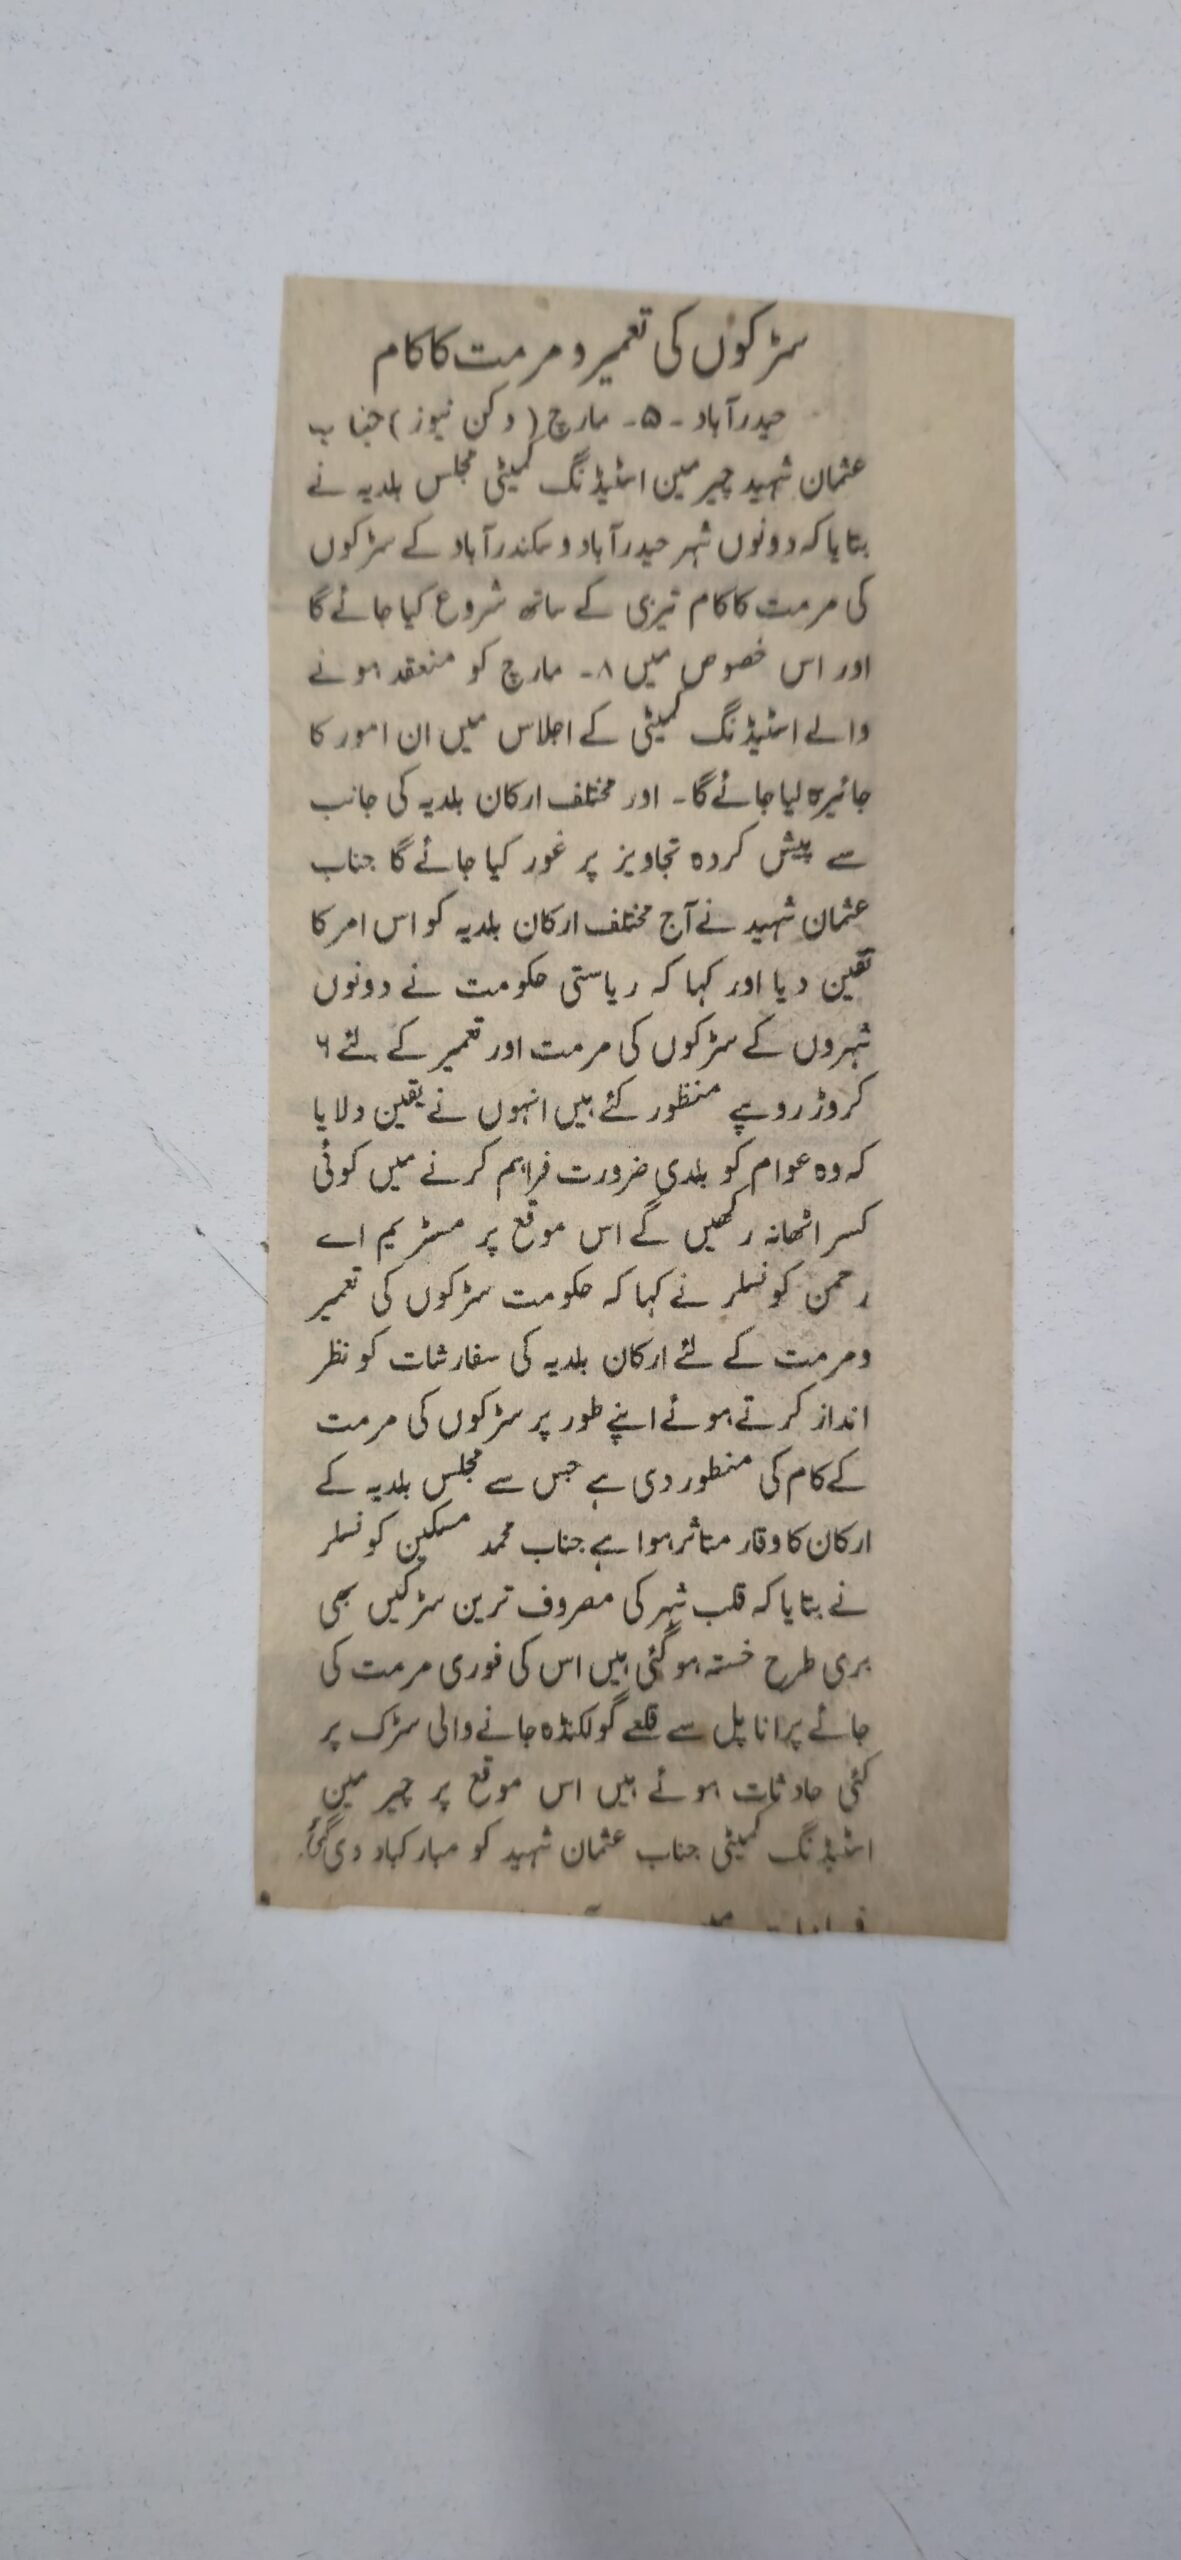 سڑکوں کی تعمیر و مرمت کا کام
حیدرآباد ۔ ۵ ۔ مارچ ( دکن نیوز ) جناب
عثمان شہید چیرمین اسٹیڈنگ کمیٹی مجلس بلدیہ نے
بتایا کہ دونوں شہر حیدرآباد و سکندرآباد کے سڑکوں
کی مرمت کا کام تیزی کے ساتھ شروع کیا جائے گا
اور اس خصوص میں ۸۔ مارچ کو منعقد ہونے
والے اسٹیڈنگ کمیٹی کے اجلاس میں ان امور کا
جائیزہ لیا جائے گا۔ اور مختلف ارکان بلدیہ کی جانب
سے پیش کردہ تجاویز پر غور کیا جائے گا جناب
عثمان شہید نے آج مختلف ارکان بلدیہ کو اس امر کا
تقین دیا اور کہا کہ ریاستی حکومت نے دونوں
شہروں کے سڑکوں کی مرمت اور تعمیر کے لئے ۶
کروڑ روپیے منظور کئے ہیں انہوں نے یقین دلایا
کہ وہ عوام کو بلدی ضرورت فراہم کرنے میں کوئی
کسر اٹھانہ رکھیں گے اس موقع پر مسٹر یم اے
رحمن کونسلر نے کہا کہ حکومت سڑکوں کی تعمیر
و مرمت کے لئے ارکان بلدیہ کی سفارشات کو نظر
انداز کرتے ہوئے اپنے طور پر سڑکوں کی مرمت
کے کام کی منطور دی ہے جس سے مجلس بلدیہ کے
ارکان کا وقار متاثر ہوا ہے جناب محمد مسکین کونسلر
نے بتایا کہ قلب شہر کی مصروف ترین سڑکیں بھی
بری طرح خستہ ہو گئی ہیں اس کی فوری مرمت کی
جائے پرانا پل سے قلعے گولکنڈہ جانے والی سڑک پر
کئی حادثات ہوئے ہیں اس موقع پر چیر مین
اسٹیڈنگ کمیٹی جناب عثمان شہید کو مبارکباد دی گئی۔